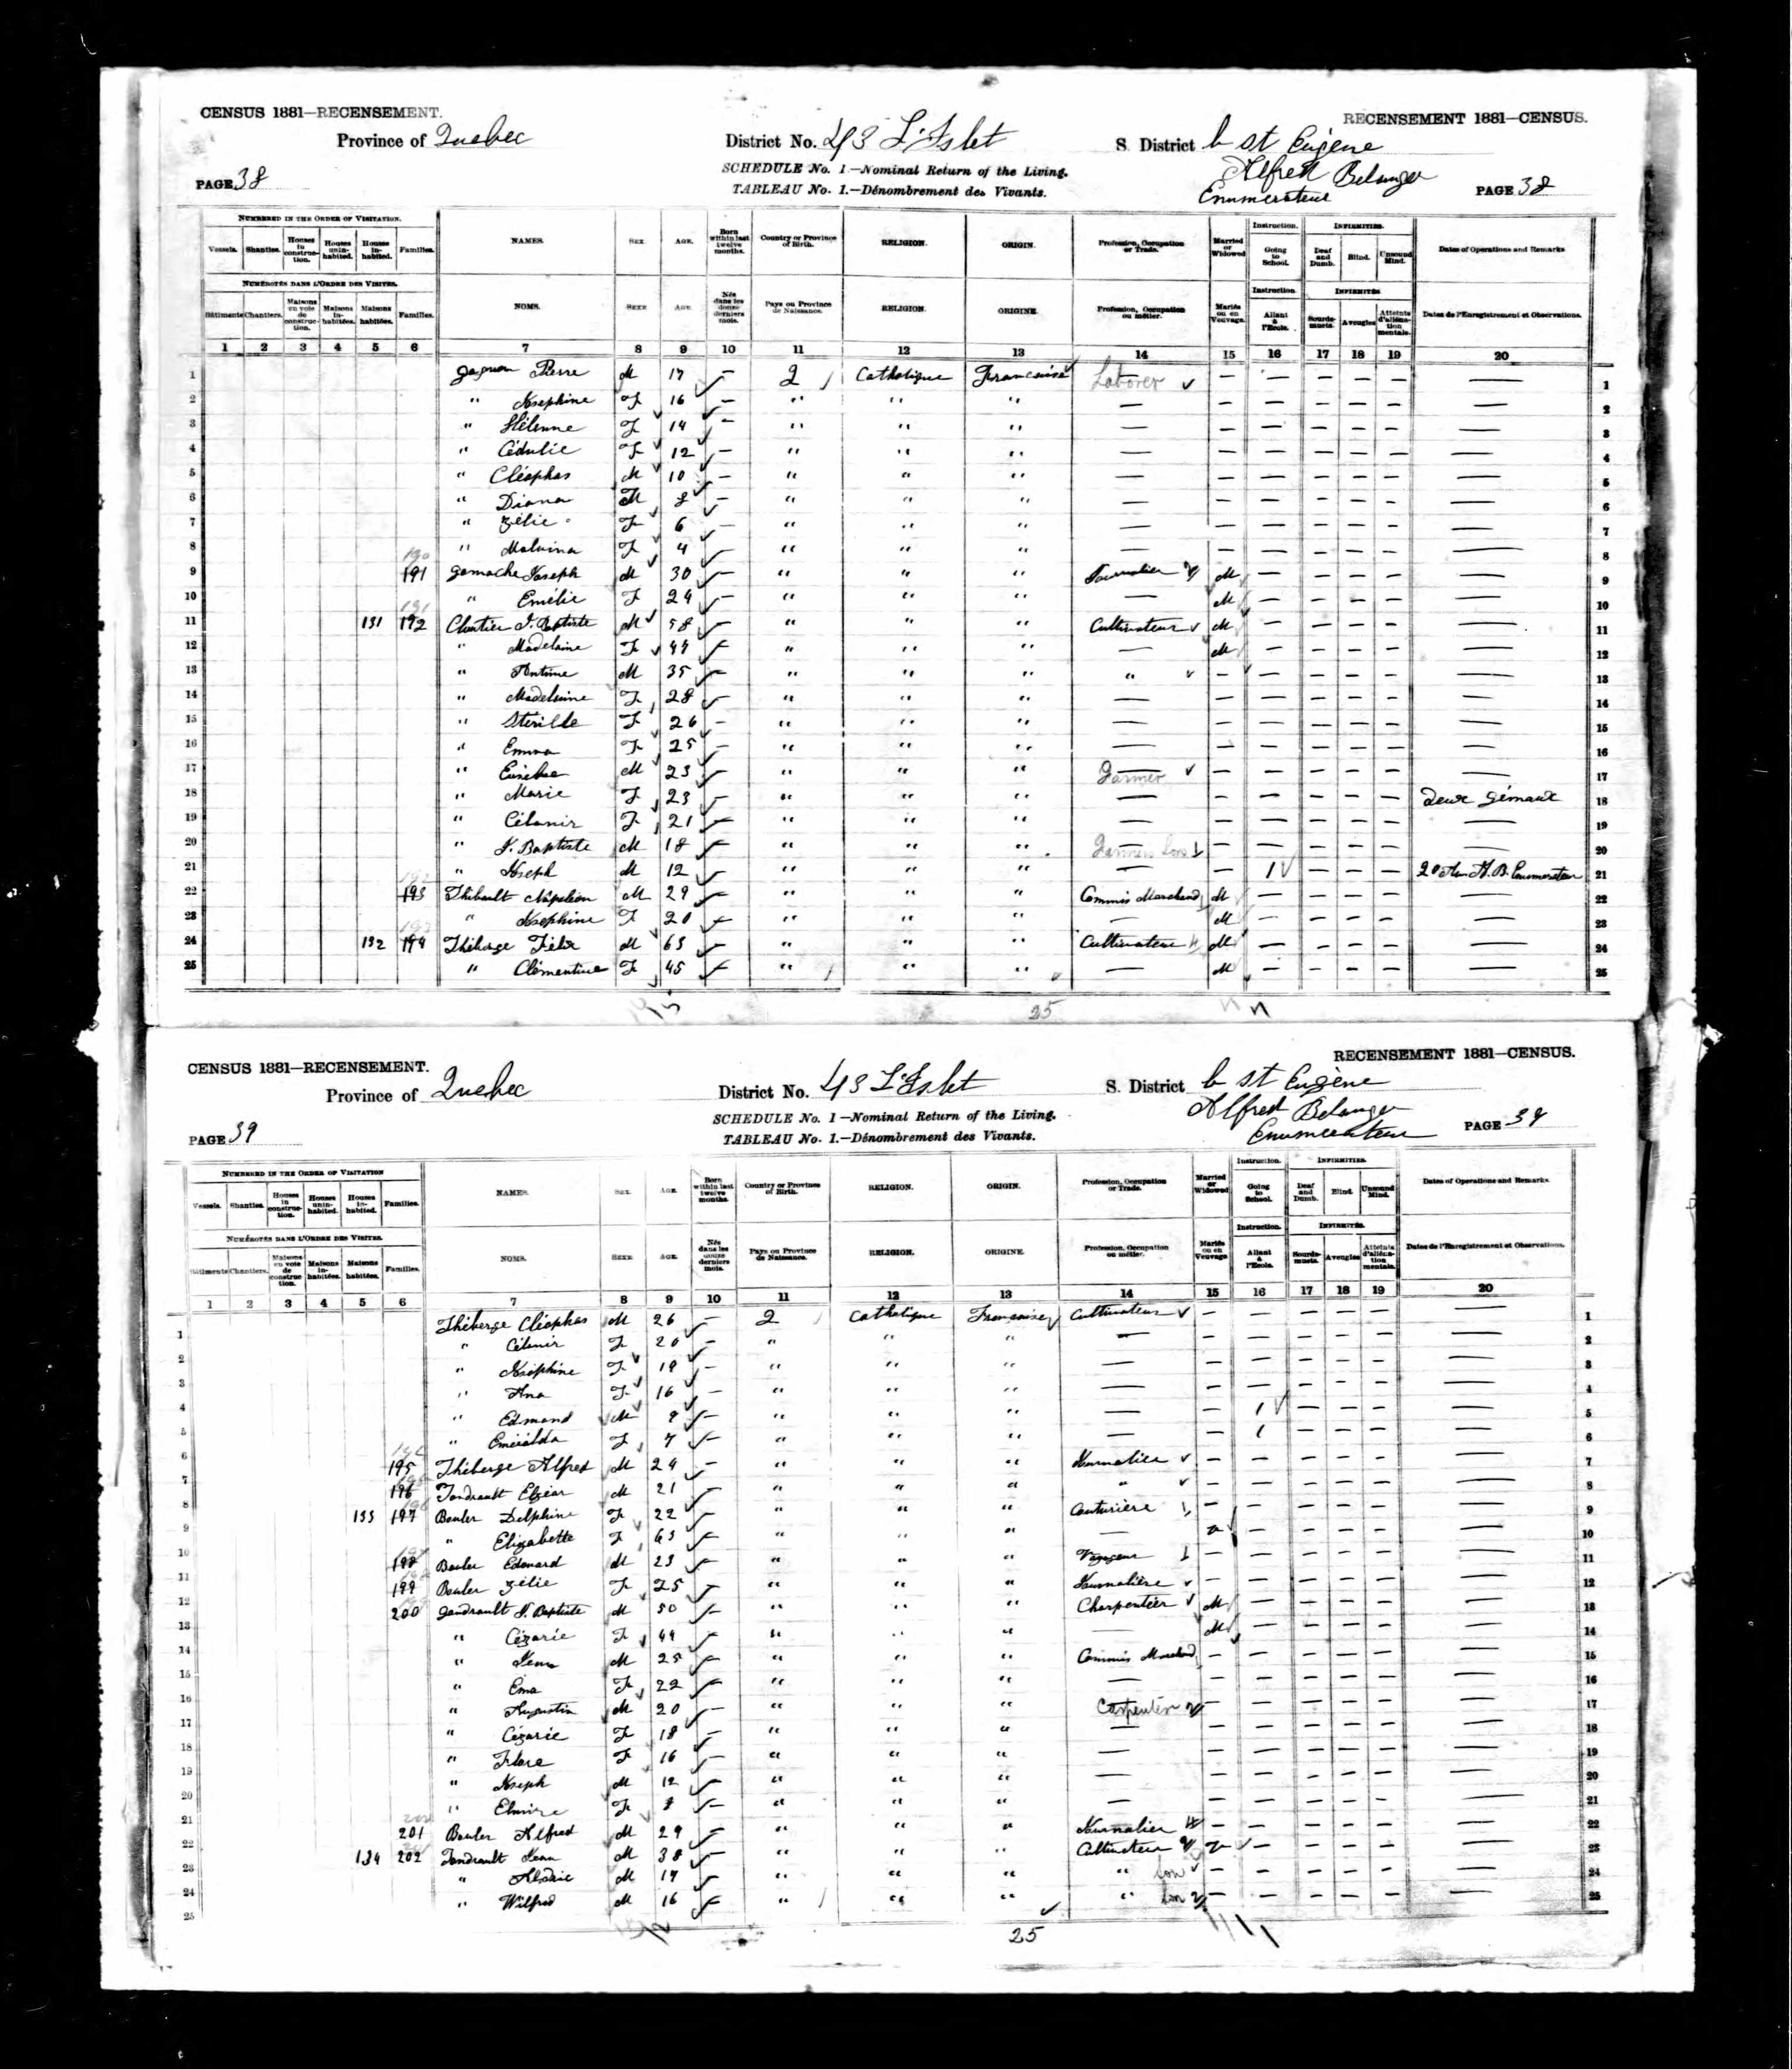 CENSUS 1881—RECENSEMENT. RECENSEMENT 1881—CENSUS.
Province of Quebec District No. 43 L'Islet S. District b St Eugène
SCHEDULE No. 1—Nominal Return of the Living. Alfred Belanger
PAGE 38 TABLEAU No. 1.—Dénombrement des Vivants. Enumerateur PAGE 38
NUMBERED IN THE ORDER OF VISITATION. NAMES. SEX. AGE. Born within last twelve months. Country or Province of Birth. RELIGION. ORIGIN. Profession, Occupation or Trade. Married or Widowed Instruction. Going to School. INFIRMITIES. Dates of Operations and Remarks
Vessels. Shanties. Houses in construction. Houses uninhabited. Houses inhabited. Families. Deaf and Dumb. Blind. Unsound Mind.
NUMÉROTÉS DANS L'ORDRE DES VISITES. NOMS. SEXE AGE. Nés dans les douze derniers mois. Pays ou Province de Naissance. RELIGION. ORIGINE. Profession, Occupation ou métier. Mariés ou en Veuvage. Instruction. Allant à l'École. INFIRMITÉS Dates de l'Enregistrement et Observations.
Bâtiments Chantiers. Maisons en voie de construction. Maisons inhabitées. Maisons habitées. Familles. Sourds-muets. Aveugles Atteints d'aliénation mentale.
1 2 3 4 5 6 7 8 9 10 11 12 13 14 15 16 17 18 19 20
1 Gagnon Pierre M 17 — 2 Catholique Francaise Laborer — — — — — — 1
2 " Josephine F 16 — " " " — — — — — — — 2
3 " Hélenne F 14 — " " " — — — — — — — 3
4 " Cédulie F 12 — " " " — — — — — — — 4
5 " Cléophas M 10 — " " " — — — — — — — 5
6 " Diana F 8 — " " " — — — — — — — 6
7 " Zélie F 6 — " " " — — — — — — — 7
8 " Malvina F 4 — " " " — — — — — — — 8
9 190 191 Gamache Joseph M 30 — " " " Journalier M — — — — — 9
10 " Emélie F 24 — " " " — M — — — — — 10
11 131 191 192 Cloutier J. Baptiste M 58 — " " " Cultivateur M — — — — — 11
12 " Madelaine F — " " " — M — — — — — 12
13 " Antime M 35 — " " " " — — — — — — 13
14 " Madelaine F 28 — " " " — — — — — — — 14
15 " F 26 — " " " — — — — — — — 15
16 " Emma F 25 — " " " — — — — — — — 16
17 " Eusèbe M 23 — " " " Farmer — — — — — — 17
18 " Marie F 23 — " " " — — — — — — Deux Gémaux 18
19 " Célanir F 21 — " " " — — — — — — — 19
20 " J. Baptiste M 18 — " " " Farmers Son — — — — — — 20
21 " Joseph M 12 — " " " — — 1 — — — A. B. Enumerateur 21
22 193 Thibault Napoléon M 29 — " " " Commis Marchand M — — — — — 22
23 " Josephine F 20 — " " " — M — — — — — 23
24 132 193 194 Théberge Félix M 63 — " " " Cultivateur M — — — — — 24
25 " Clémentine F 45 — " " " — M — — — — — 25
25
CENSUS 1881—RECENSEMENT. RECENSEMENT 1881—CENSUS.
Province of Quebec District No. 43 L'Islet S. District b St Eugène
SCHEDULE No. 1—Nominal Return of the Living. Alfred Belanger
PAGE 39 TABLEAU No. 1.—Dénombrement des Vivants. Enumerateur PAGE 39
NUMBERED IN THE ORDER OF VISITATION NAMES. SEX. AGE. Born within last twelve months. Country or Province of Birth. RELIGION. ORIGIN. Profession, Occupation or Trade. Married or Widowed Instruction. Going to School. INFIRMITIES. Dates of Operations and Remarks
Vessels. Shanties. Houses in construction. Houses uninhabited. Houses inhabited. Families. Deaf and Dumb. Blind. Unsound Mind.
NUMÉROTÉS DANS L'ORDRE DES VISITES. NOMS. SEXE AGE. Nés dans les douze derniers mois. Pays ou Province de Naissance. RELIGION. ORIGINE. Profession, Occupation ou métier. Mariés ou en Veuvage Instruction. Allant à l'École. INFIRMITÉS. Dates de l'Enregistrement et Observations.
Bâtiments Chantiers. Maisons en voie de construction. Maisons inhabitées. Maisons habitées. Familles. Sourds-muets. Aveugles Atteints d'aliénation mentale.
1 2 3 4 5 6 7 8 9 10 11 12 13 14 15 16 17 18 19 20
1 Théberge Cléophas M 26 — 2 Catholique Francaise Cultivateur — — — — — — 1
2 " Célanir F 20 — " " " — — — — — — — 2
3 " Joséphine F — " " " — — — — — — — 3
4 " Ana F 16 — " " " — — — — — — — 4
5 " Edmond M 9 — " " " — — 1 — — — — 5
6 " Emérilda F 7 — " " " — — 1 — — — — 6
7 195 Théberge Alfred M 24 — " " " Journalier — — — — — — 7
8 196 Tondrault Elzéar M 21 — " " " " — — — — — — 8
9 133 197 Bouler Delphine F 22 — " " " Couturière — — — — — — 9
10 " Elizabette F 63 — " " " — — — — — — 10
11 198 Bouler Edouard M 23 — " " " — — — — — — 11
12 199 Bouler Zélie F 25 — " " " Journalière — — — — — — 12
13 200 Gendrault J. Baptiste M 50 — " " " Charpentier M — — — — — 13
14 " Cézarie F 44 — " " " — M — — — — — 14
15 " Jean M 25 — " " " Commis Marchand — — — — — — 15
16 " Ema F 22 — " " " — — — — — — — 16
17 " Augustin M 20 — " " " Carpenter — — — — — — 17
18 " Cézarie F 18 — " " " — — — — — — — 18
19 " Flore F 16 — " " " — — — — — — — 19
20 " Joseph M 12 — " " " — — — — — — — 20
21 " Elmire F 8 — " " " — — — — — — — 21
22 201 Bouler Alfred M 29 — " " " Journalier — — — — — — 22
23 134 202 Tondrault Jean M 38 — " " " Cultivateur — — — — — 23
24 " M 17 — " " " " Son — — — — — — 24
25 " Wilfred M 16 — " " " " Son — — — — — — 25
25